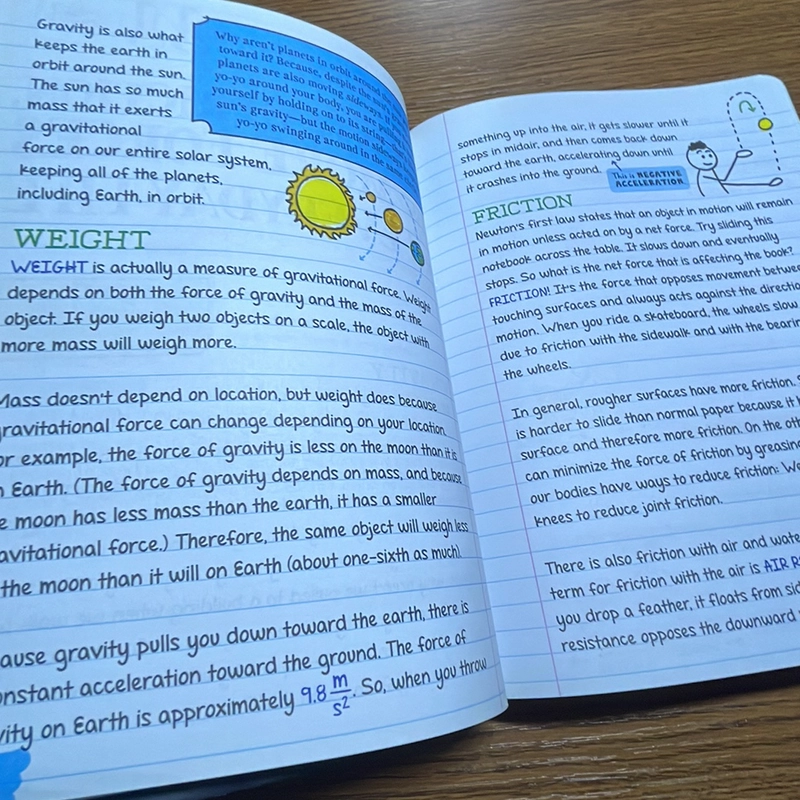 Gravity is also what
keeps the earth in
orbit around the sun.
The sun has so much
mass that it exerts
a gravitational
force on our entire solar system,
keeping all of the planets,
including Earth, in orbit.
Why aren't planets in orbit around
toward it? Because, despite the sun's
planets are also moving sideways. If
yo-yo around your body, you are pulling
yourself by holding on to its string
sun's gravity—but the motion sideways
yo-yo swinging around in the same
WEIGHT
WEIGHT is actually a measure of gravitational force. Weight
depends on both the force of gravity and the mass of the
object. If you weigh two objects on a scale, the object with
more mass will weigh more.
Mass doesn't depend on location, but weight does because
gravitational force can change depending on your location.
or example, the force of gravity is less on the moon than it is
n Earth. (The force of gravity depends on mass, and because
e moon has less mass than the earth, it has a smaller
avitational force.) Therefore, the same object will weigh less
the moon than it will on Earth (about one-sixth as much).
ause gravity pulls you down toward the earth, there is
onstant acceleration toward the ground. The force of
vity on Earth is approximately 9.8 m/s². So, when you throw
something up into the air, it gets slower until it
stops in midair, and then comes back down
toward the earth, accelerating down until
it crashes into the ground.
This is NEGATIVE
ACCELERATION
FRICTION
Newton's first law states that an object in motion will remain
in motion unless acted on by a net force. Try sliding this
notebook across the table. It slows down and eventually
stops. So what is the net force that is affecting the book?
FRICTION! It's the force that opposes movement between
touching surfaces and always acts against the directio
motion. When you ride a skateboard, the wheels slow
due to friction with the sidewalk and with the bearin
the wheels.
In general, rougher surfaces have more friction. S
is harder to slide than normal paper because it h
surface and therefore more friction. On the oth
can minimize the force of friction by greasing
our bodies have ways to reduce friction: We
knees to reduce joint friction.
There is also friction with air and wate
term for friction with the air is AIR R
you drop a feather, it floats from sid
resistance opposes the downward